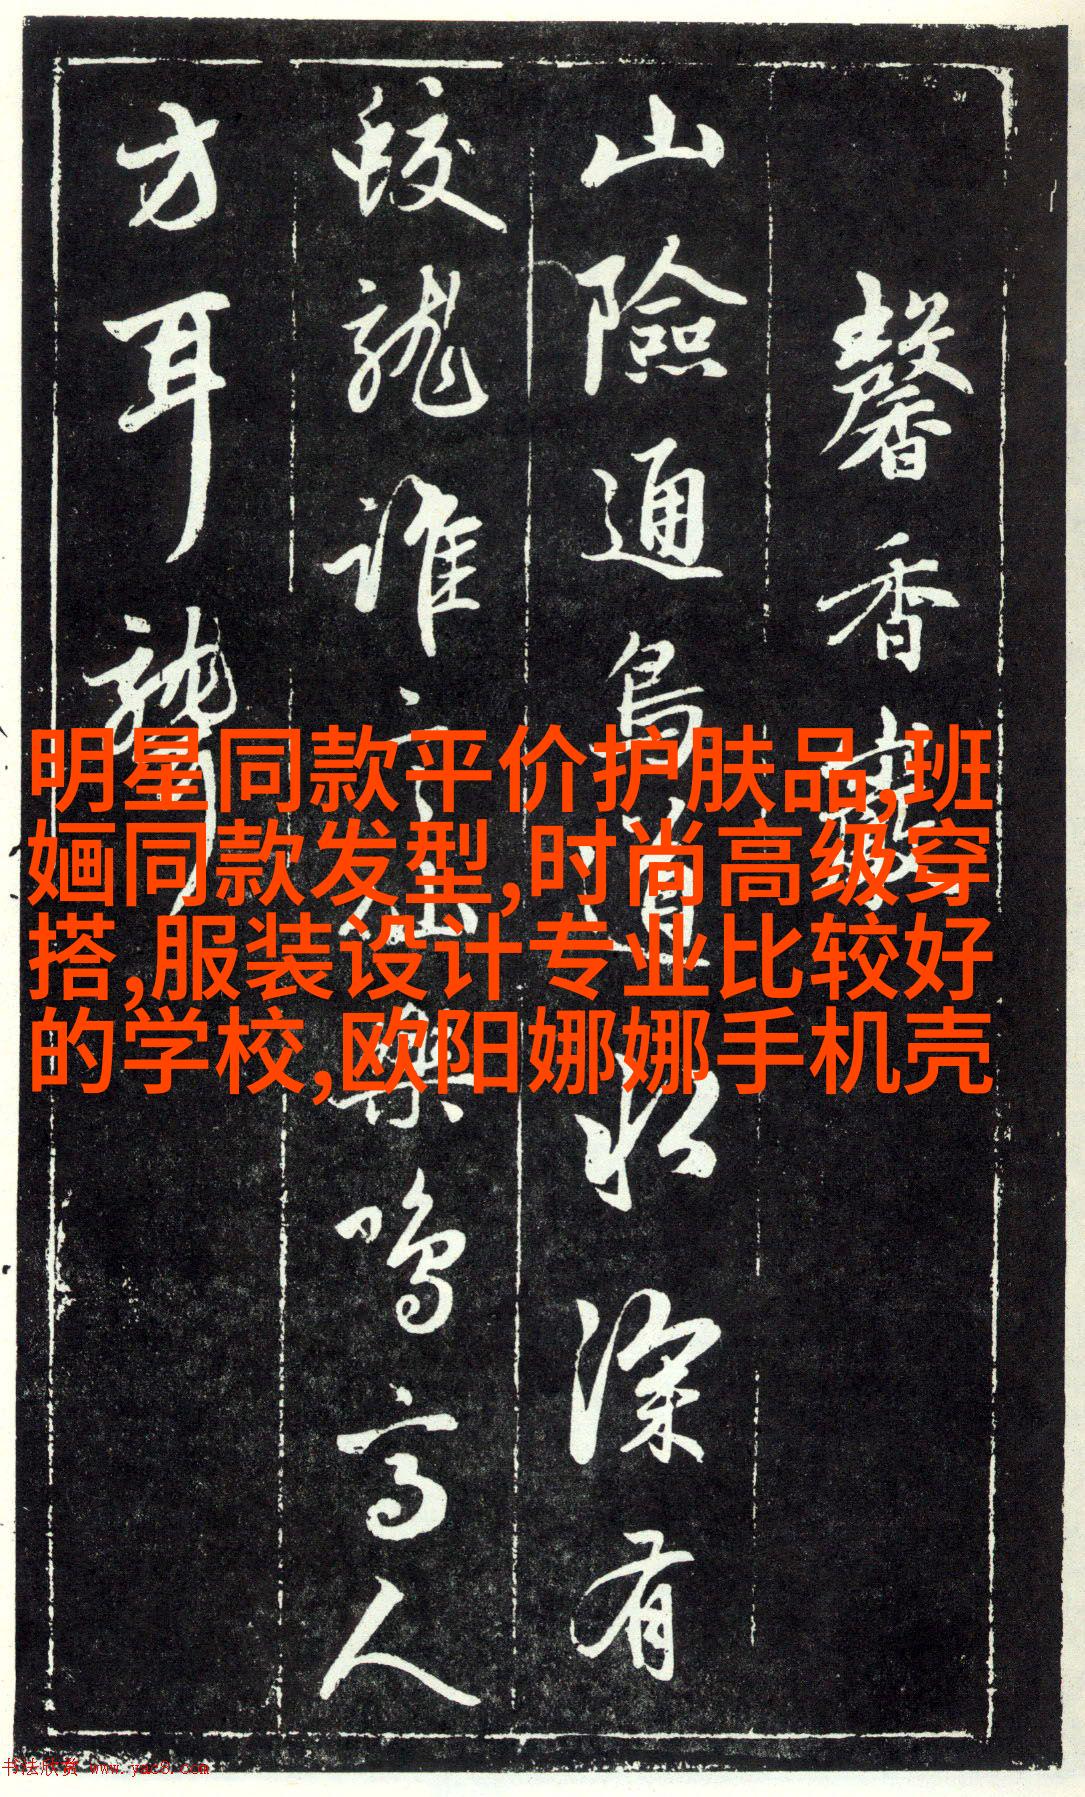 馨香
山險通鳥道水深有
蛟龍誰言仙樂鳴高人
方耳聾
明星同款平价护肤品,班
婳同款发型,时尚高级穿
搭,服装设计专业比较好
的学校,欧阳娜娜手机壳
书法欣赏 www.yac8.com